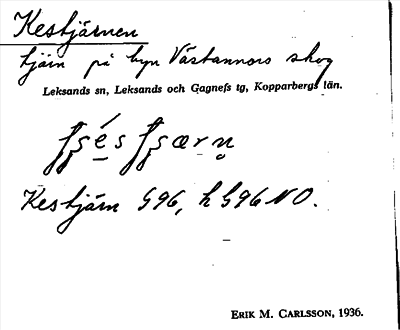 Kestjärnen
tjärn på byn Västannors skog
Leksands sn, Leksands och Gagnefs tg, Kopparbergs län.
Kestjärn G96, h G96 NO.
ERIK M. CARLSSON, 1936.